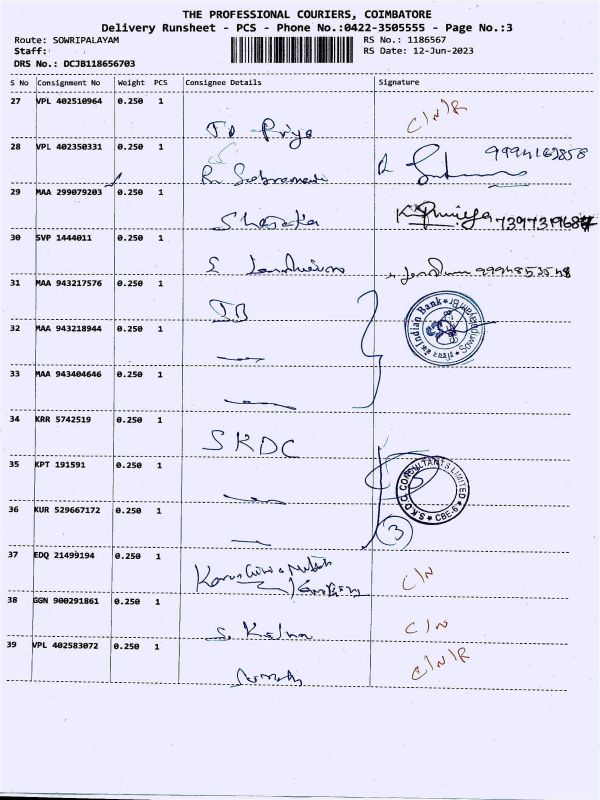 THE PROFESSIONAL COURIERS, COIMBATORE
Delivery Runsheet - PCS - Phone No.:0422-3505555 - Page No.:3
Route: SOWRIPALAYAM RS No.: 1186567
Staff: RS Date: 12-Jun-2023
DRS No.: DCJB118656703
S No Consignment No Weight PCS Consignee Details Signature
27 VPL 402510964 0.250 1
Priya C/N/R
28 VPL 402350331 0.250 1
9994162858
29 MAA 299079203 0.250 1
30 SVP 1444011 0.250 1
31 MAA 943217576 0.250 1
IB
Indian Bank
32 MAA 943218944 0.250 1
33 MAA 943404646 0.250 1
34 KRR 5742519 0.250 1
SKDC
35 KPT 191591 0.250 1
S.K.D.C. CONSULTANTS LIMITED * CBE-6 *
36 KUR 529667172 0.250 1
3
37 EDQ 21499194 0.250 1
C/N
38 GGN 900291861 0.250 1
C/N
39 VPL 402583072 0.250 1
C/N/R